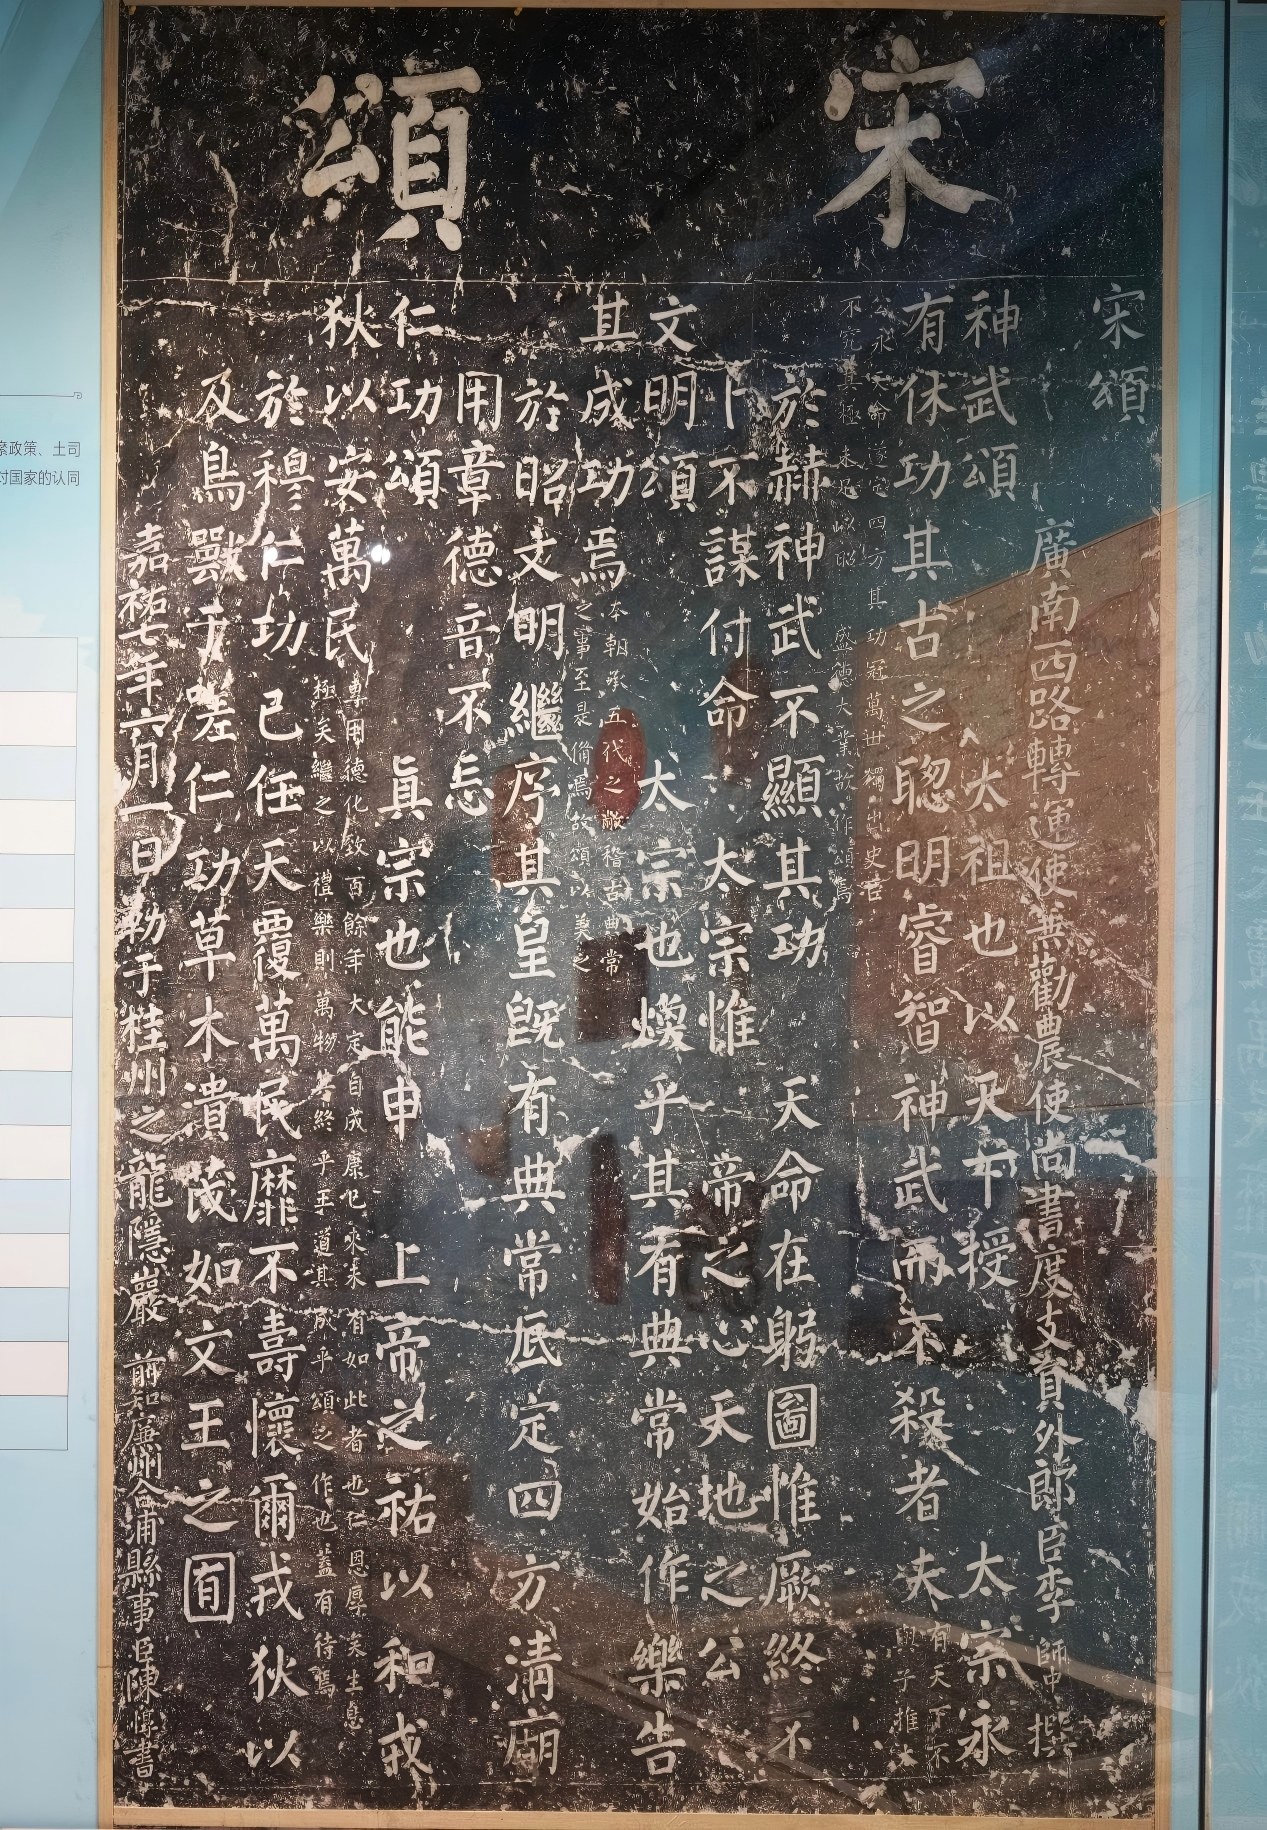 宋頌
宋頌
廣南西路轉運使兼勸農使尚書度支員外郎臣李師中撰
神武頌太祖也以天下授太宗永
有休功其古之聰明睿智神武而不殺者夫
有天下不
子推大
公永天命遂定四方其功冠萬世獨出史
不究其極未足以昭盛德大業故作頌焉
於赫神武不顯其功天命在躬圖惟厥終不
卜不謀付命太宗惟帝之心天地之公
文明頌太宗也煥乎其有典常始作樂告
其成功焉
本朝承五代之敝稽古典常
之事至是備焉故頌以美之
於昭文明繼序其皇旣有典常底定四方清廟
用章德音不忘
仁功頌真宗也能申上帝之祐以和戎
狄以安萬民
專用德化致百餘年大定自成康已來未有如此者也仁恩厚矣生息
極矣繼之以禮樂則萬物終乎王道其成乎頌之作也蓋有待焉
於穆仁功已任天覆萬民靡不壽懷爾戎狄以
及鳥獸于嗟仁功草木濆茂如文王之囿
嘉祐七年六月一日勒于桂州之龍隱巖
前知廉州合浦縣事臣陳惇書
察政策、土司
对国家的认同